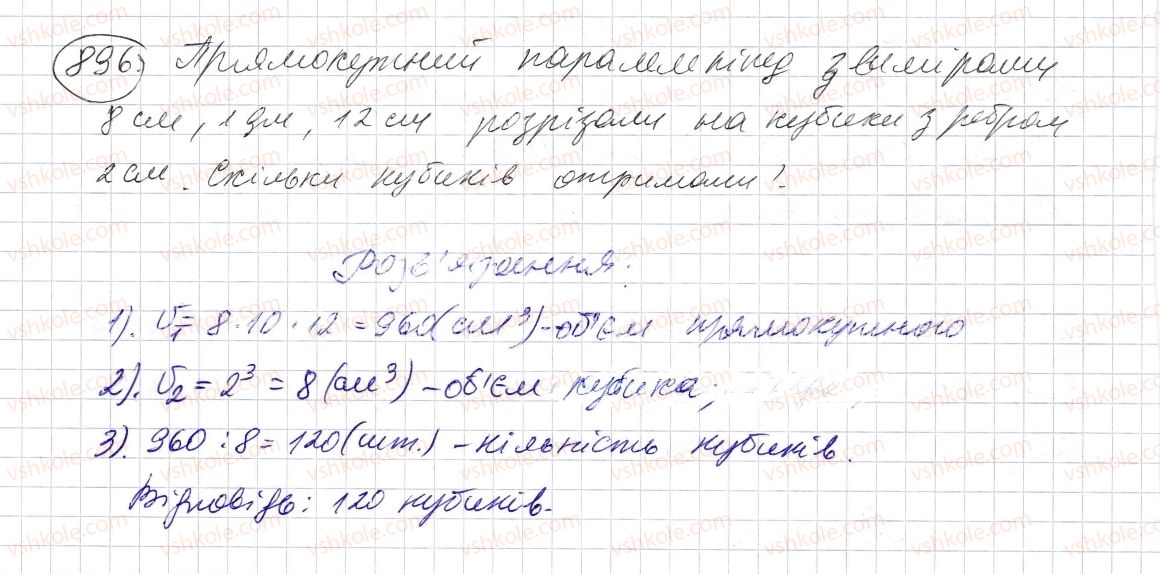 896. Прямокутний паралелепіпед з вимірами
8 см, 1 дм, 12 см розрізали на кубики з ребром
2 см. Скільки кубиків отримали?
Розв'язання:
1). V₁ = 8·10·12 = 960 (см³) – об'єм прямокутного
2). V₂ = 2³ = 8 (см³) – об'єм кубика;
3). 960 : 8 = 120 (шт.) – кількість кубиків.
Відповідь: 120 кубиків.